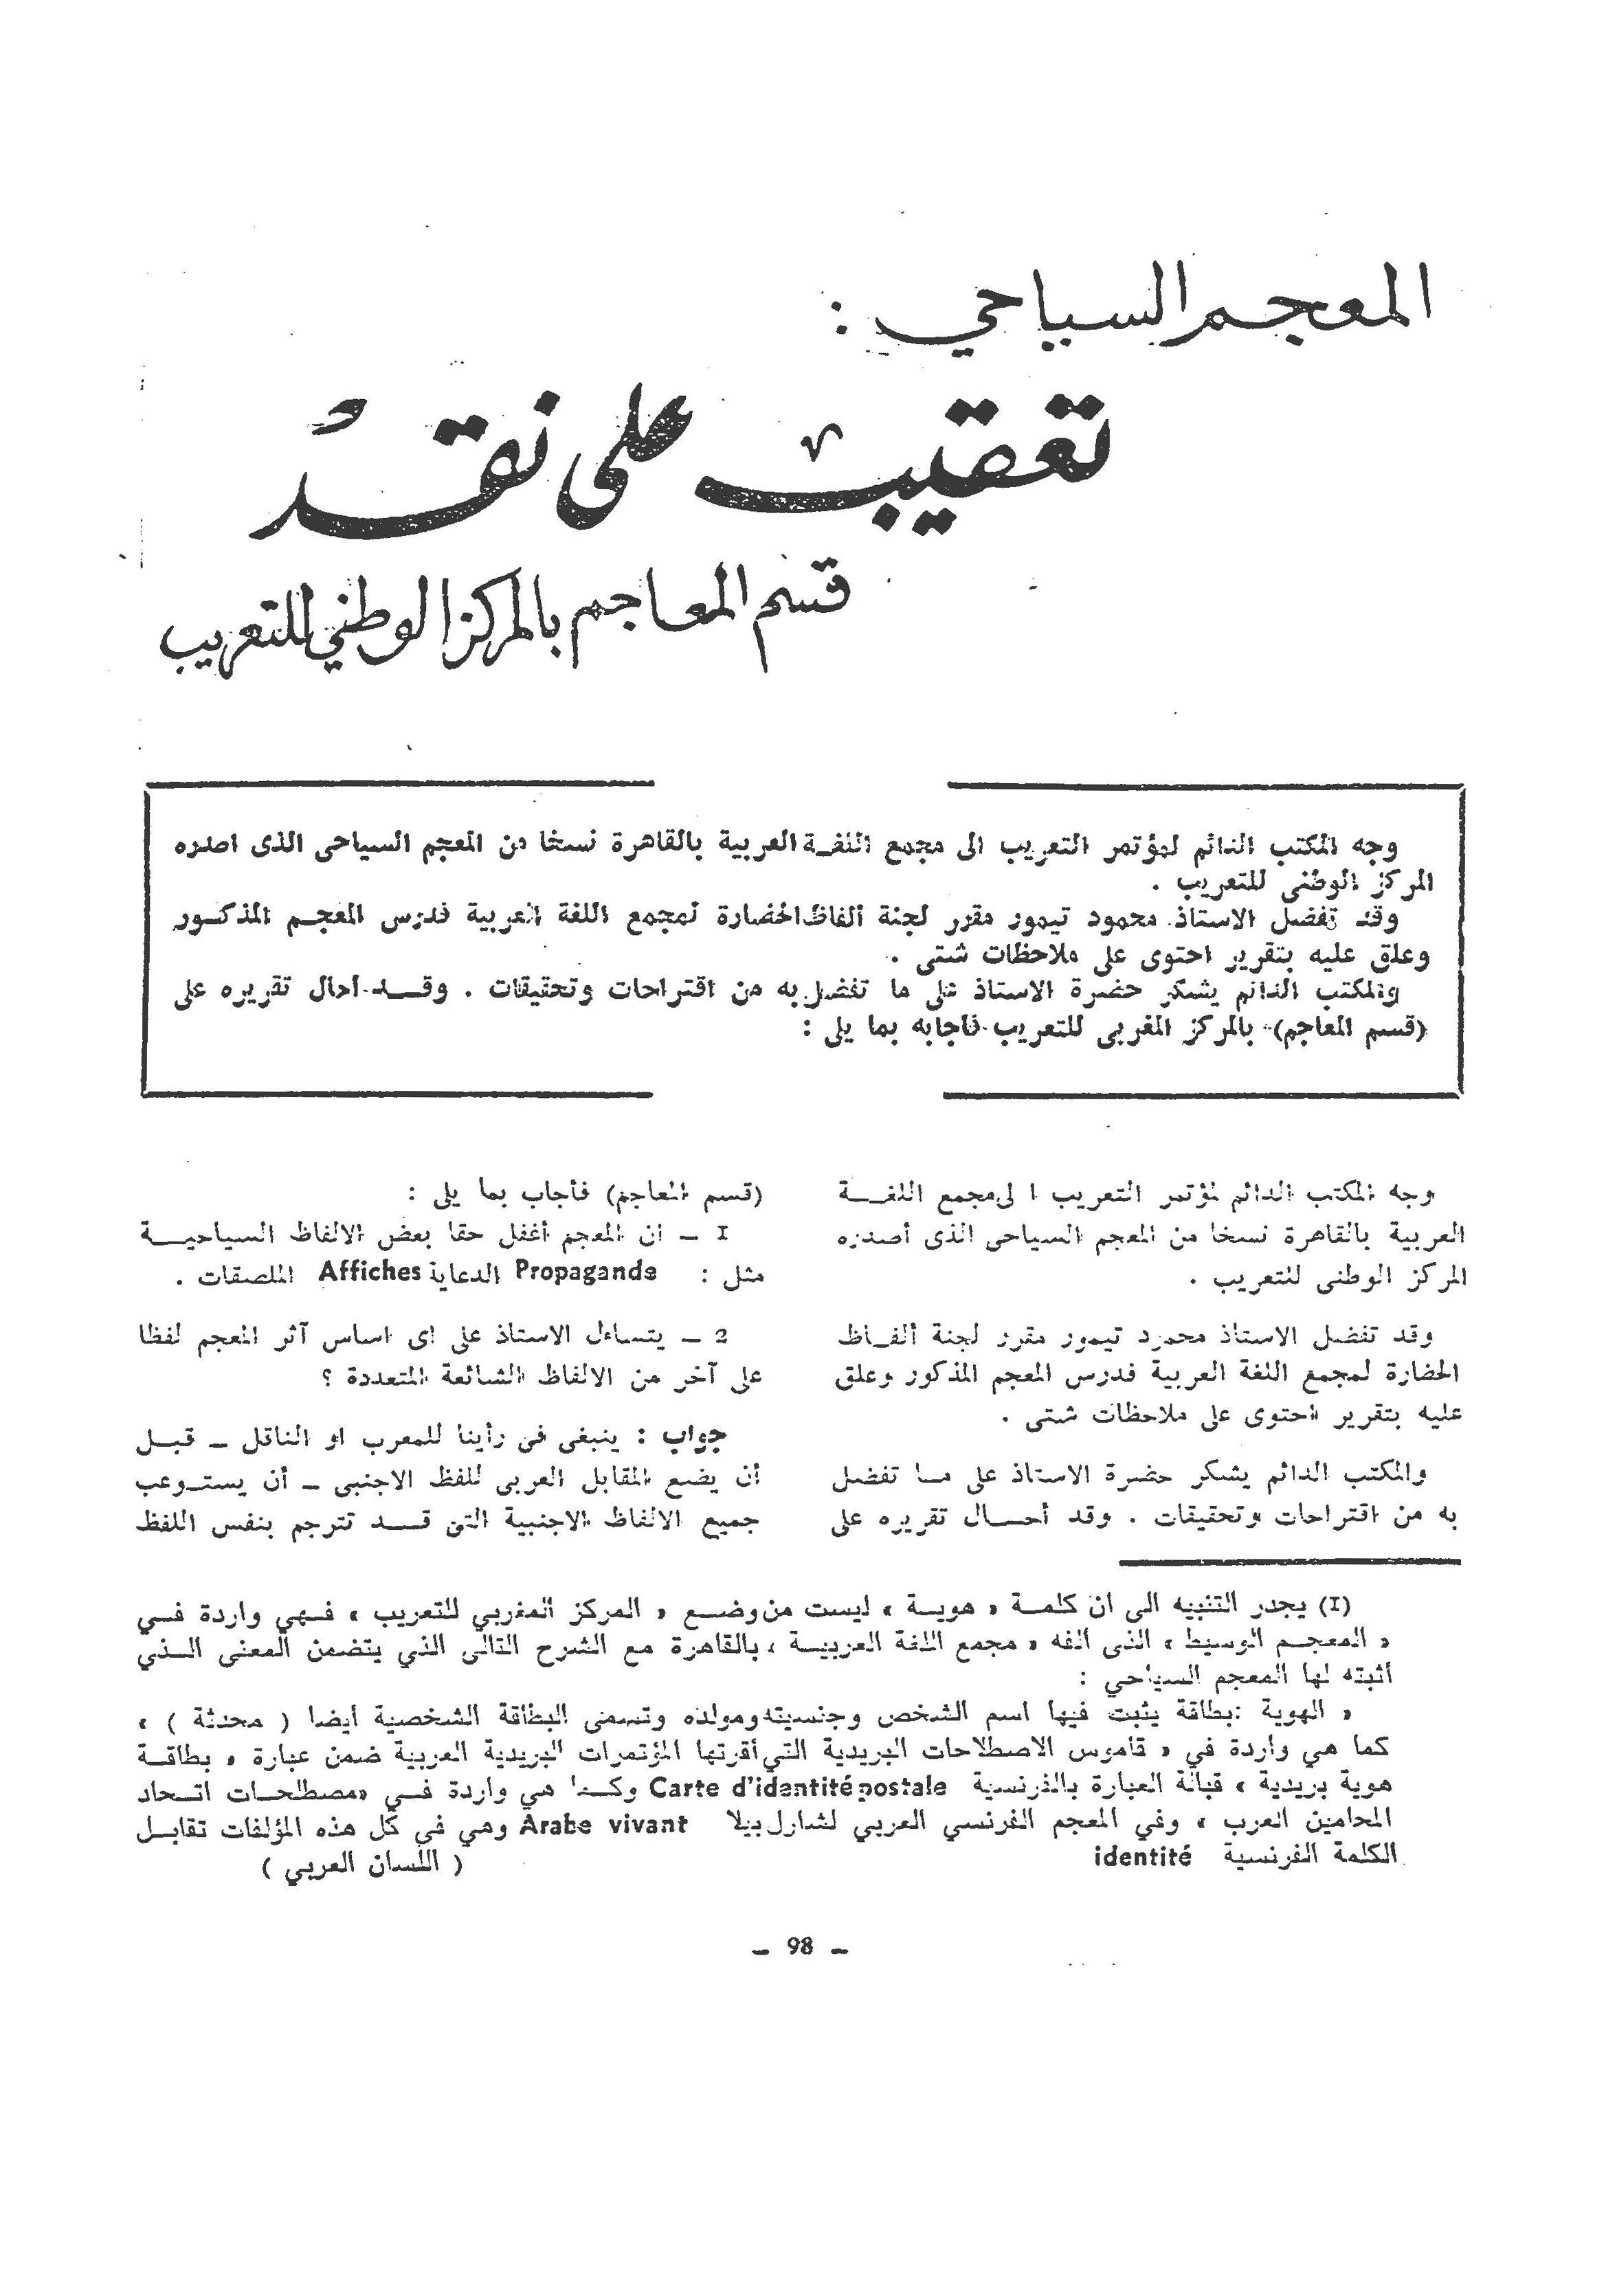 المعجم السياحي :
تعقيب على نقد
قسم المعاجم بالمركز الوطني للتعريب
وجه المكتب الدائم لمؤتمر التعريب الى مجمع اللغة العربية بالقاهرة نسخا من المعجم السياحى الذى اصدره
المركز الوطنى للتعريب .
وقد تفضل الاستاذ محمود تيمور مقرر لجنة ألفاظ الحضارة لمجمع اللغة العربية فدرس المعجم المذكور
وعلق عليه بتقرير احتوى على ملاحظات شتى .
والمكتب الدائم يشكر حضرة الاستاذ على ما تفضل به من اقتراحات وتحقيقات . وقد احال تقريره على
(قسم المعاجم) بالمركز المغربى للتعريب فأجابه بما يلى :
وجه المكتب الدائم لمؤتمر التعريب ا لى مجمع اللغة
العربية بالقاهرة نسخا من المعجم السياحى الذى أصدره
المركز الوطنى للتعريب .
وقد تفضل الاستاذ محمود تيمور مقرر لجنة ألفاظ
الحضارة لمجمع اللغة العربية فدرس المعجم المذكور وعلق
عليه بتقرير احتوى على ملاحظات شتى .
والمكتب الدائم يشكر حضرة الاستاذ على ما تفضل
به من اقتراحات وتحقيقات . وقد أحال تقريره على
(قسم المعاجم) فأجاب بما يلى :
1 – ان المعجم أغفل حقا بعض الالفاظ السياحية
مثل : Propagande الدعاية Affiches الملصقات .
2 – يتساءل الاستاذ على اى اساس آثر المعجم لفظا
على آخر من الالفاظ الشائعة المتعددة ؟
جواب : ينبغى فى رأينا للمعرب او الناقل – قبل
أن يضع المقابل العربى للفظ الاجنبى – أن يستوعب
جميع الالفاظ الاجنبية التى قد تترجم بنفس اللفظ
(1) يجدر التنبيه الى ان كلمة « هوية » ليست من وضع « المركز المغربي للتعريب » فهي واردة في
« المعجم الوسيط » الذى ألفه « مجمع اللغة العربية » بالقاهرة مع الشرح التالى الذي يتضمن المعنى الذي
أثبته لها المعجم السياحي :
« الهوية : بطاقة يثبت فيها اسم الشخص وجنسيته ومولده وتسمى البطاقة الشخصية أيضا ( محدثة ) »
كما هي واردة في « قاموس الاصطلاحات البريدية التي أقرتها المؤتمرات البريدية العربية ضمن عبارة « بطاقة
هوية بريدية » قبالة العبارة بالفرنسية Carte d'identité postale وكما هي واردة في «مصطلحات اتحاد
المحامين العرب » وفي المعجم الفرنسي العربي لشارل بيلا Arabe vivant وهي في كل هذه المؤلفات تقابل
الكلمة الفرنسية identité
( اللسان العربي )
– 98 –